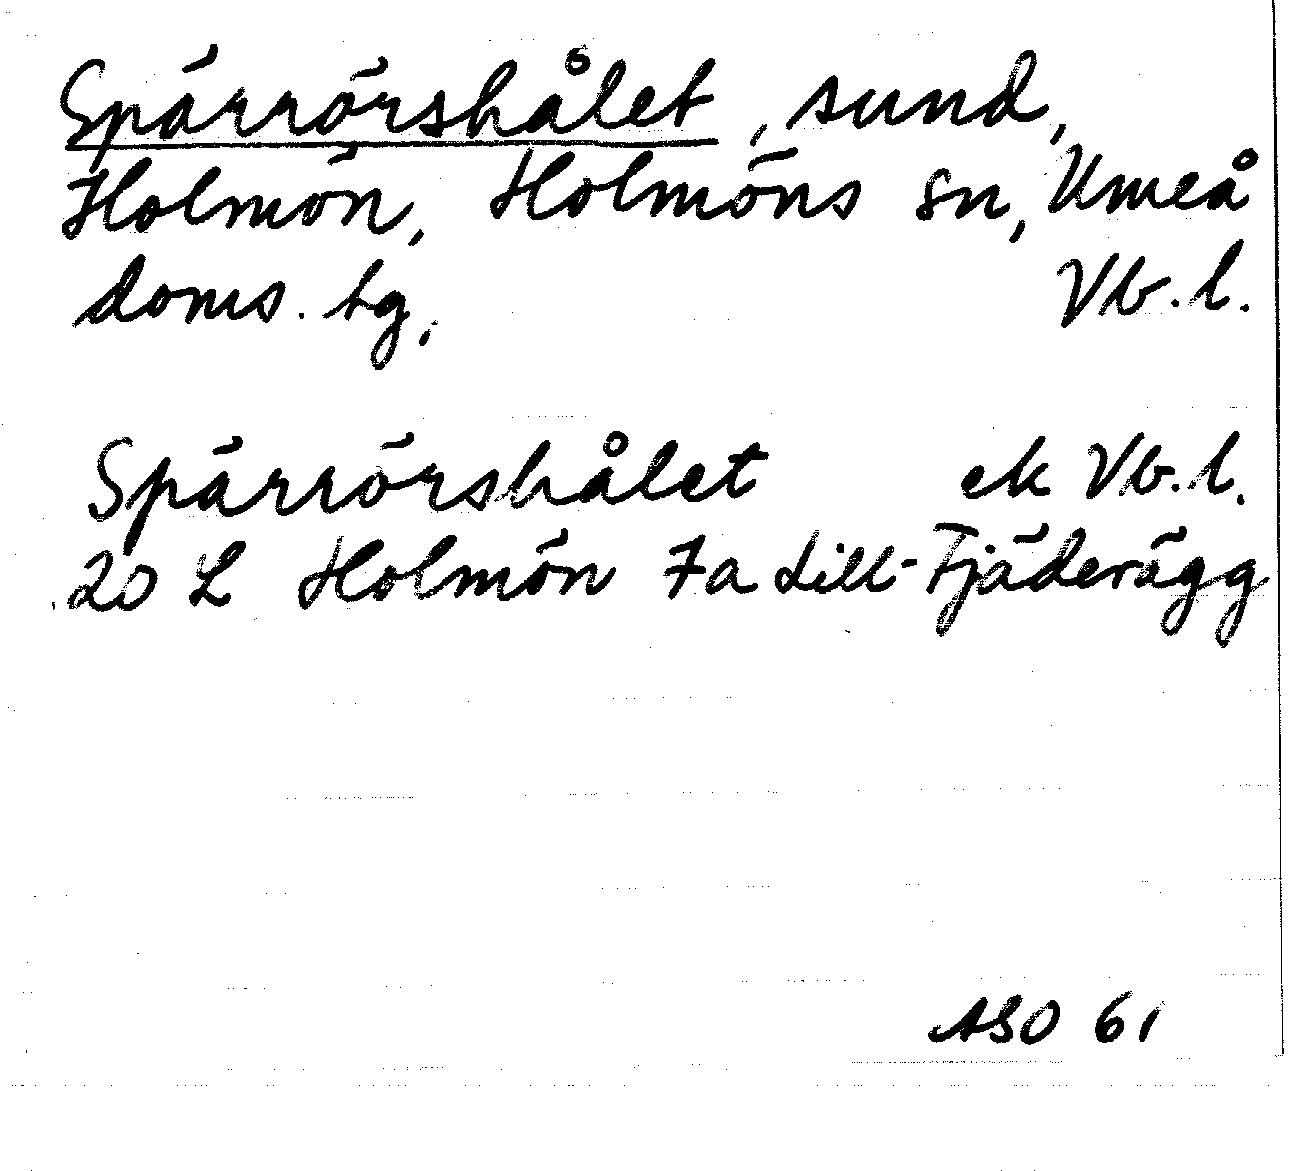 Spärrörshålet, sund,
Holmön, Holmöns sn, Umeå
doms. tg, Vb. l.
Spärrörshålet ek Vb. l.
20 L Holmön 7a Lill-Fjäderägg
ASO 61